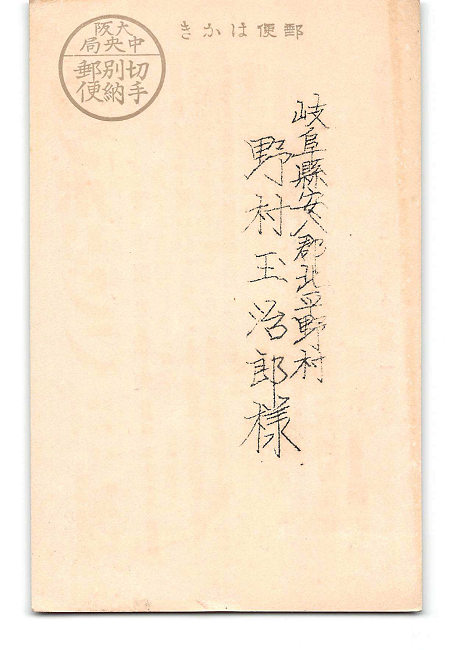 郵便はかき
大阪
中央
局
切手
別納
郵便
岐阜縣安八郡北平野村
野村玉治郎様